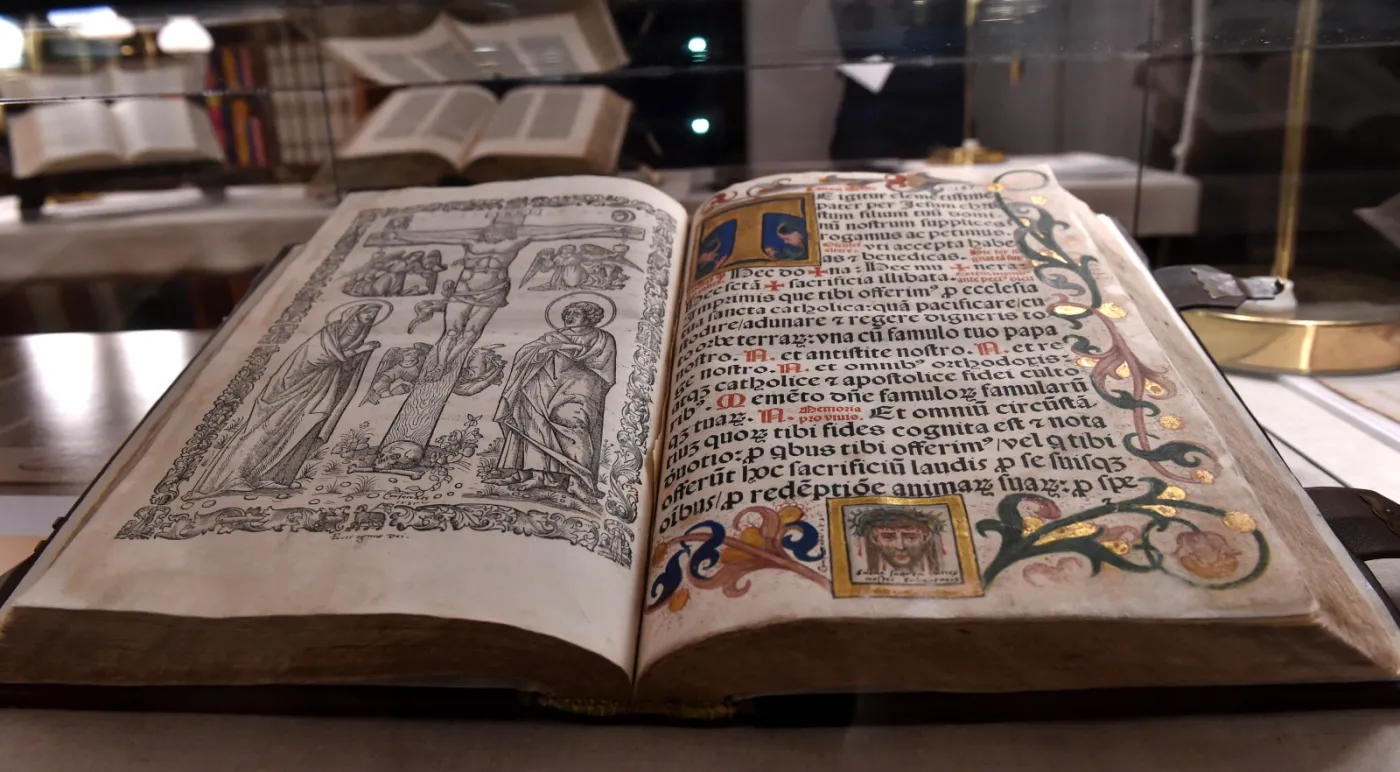 E igitur clemētissime
pater per Iesum chri
stum filium tuū domi
nū nostrum supplices
rogamus ac petimus.
vti accepta habe
as ⁊ benedicas.
Hec do✠na: Hec mu✠nera
Hec sctā ✠ sacrificia illibata.
Imprimis que tibi offerimꝰ ꝓ ecclesia
tua sancta catholica: quā pacificare/cu
stodire/adunare ⁊ regere digneris to
to orbe terraꝝ: vna cū famulo tuo papa
nostro. N. et antistite nostro. N. et re
ge nostro. N. et omnibꝰ orthodoxis:
atqꝫ catholice ⁊ apostolice fidei culto
ribꝰ. Memēto dñe famuloꝝ famularū
qꝫ tuaꝝ. N. Memoria pro viuis. Et omniū circūstā.
tiū quoꝝ tibi fides cognita est ⁊ nota
deuotio: ꝓ qbus tibi offerimꝰ/vel q tibi
offerūt hoc sacrificiū laudis ꝓ se suisqꝫ
oibus/ꝓ redēptiōe animaꝝ suaꝝ: ꝓ spe